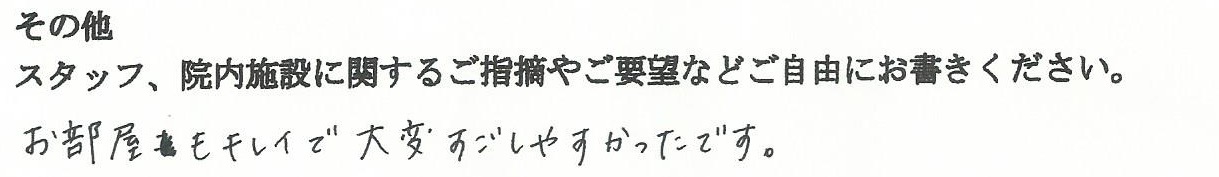 その他
スタッフ、院内施設に関するご指摘やご要望などご自由にお書きください。
お部屋もキレイで大変すごしやすかったです。